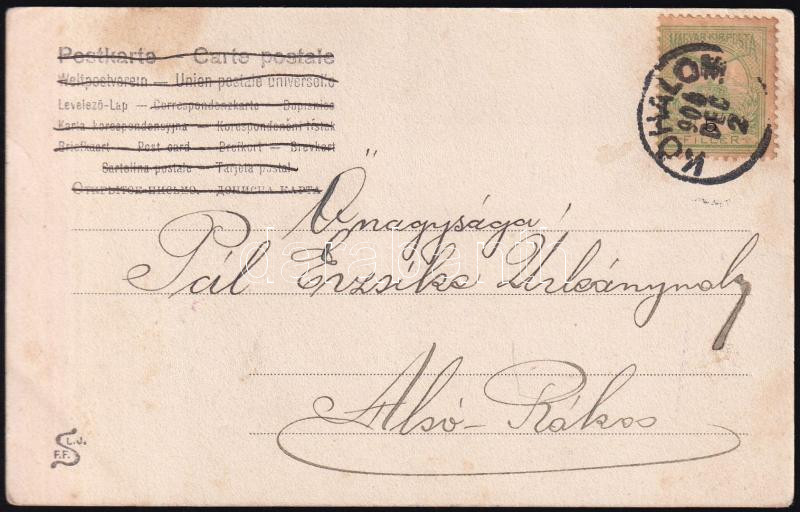 Postkarte – Carte postale
Weltpostverein – Union postale universelle
Levelező-Lap – Correspondenzkarte – Dopisnice
Karta korespondencyjna – Korespondenčni lístek
Briefkaart – Post card – Brefkort – Brevkort
Cartolina postale – Tarjeta postal
MAGYAR KIR. POSTA
FILLÉR
KŐHALOM
904
DEC
2
Őnagysága!
Pál Erzsike Urleánynak
Alsó-Rákos
L.J.
F.F.
darabanth